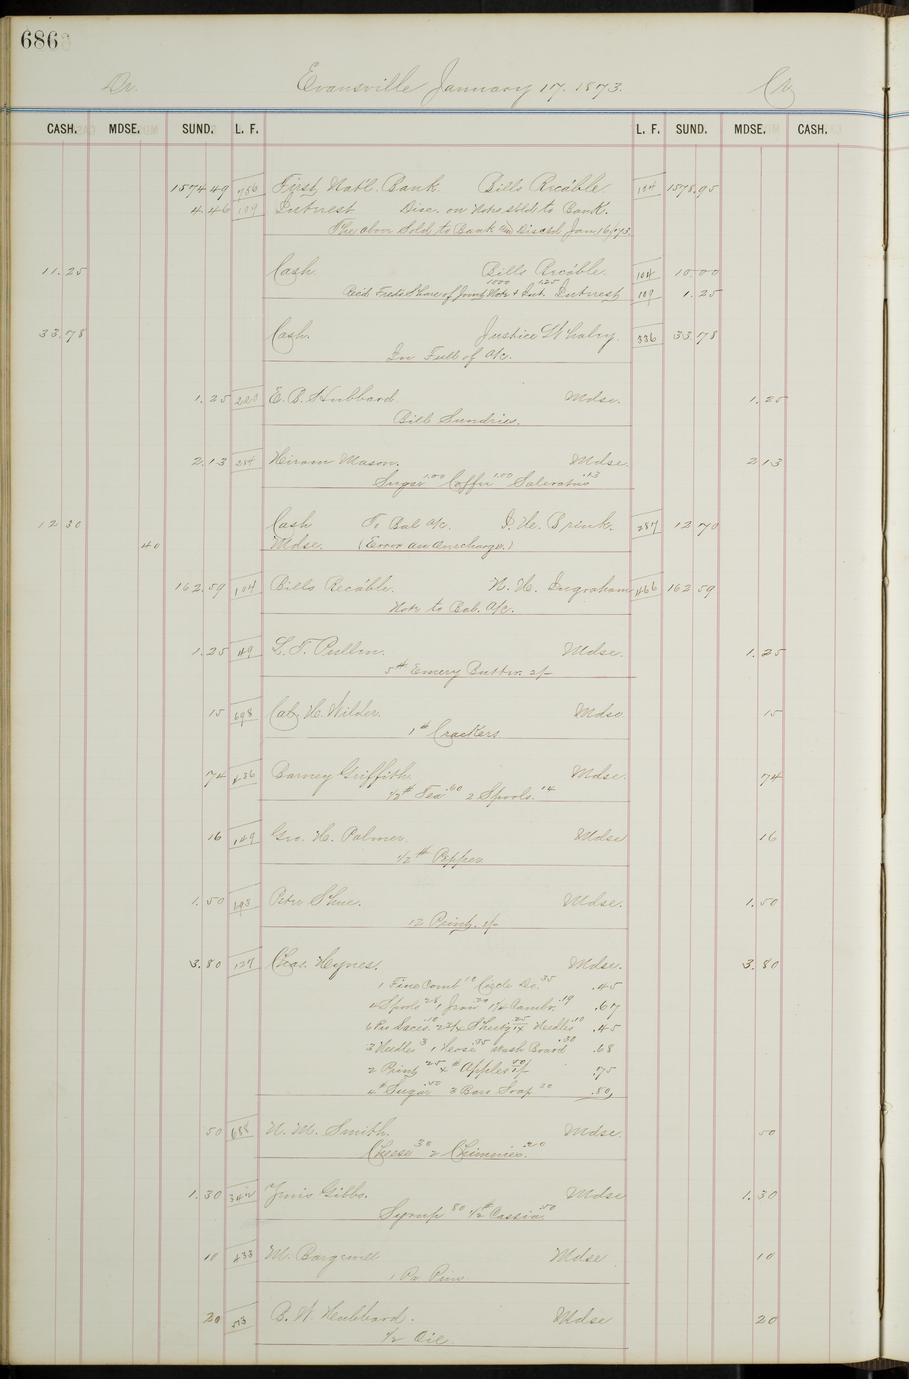 686
Dr. Evansville January 17. 1873. Cr
CASH. MDSE. SUND. L. F. L. F. SUND. MDSE. CASH.
1574 49 756 First Nat'l. Bank Bills Rec'able 104 1578.95
4.46 109 Interest Disc. on Notes Sold to Bank.
The above Sold to Bank and Discd Jan 16/73
11.25 Cash Bills Rec'able. 104 10 00
Recd. Freds Share of Joint Note 1000 & Int. 125 Interest 109 1.25
33.78 Cash. Justice Whaley 336 33.78
In Full of a/c.
1.25 220 E. B. Hubbard Mdse. 1.25
Bill Sundries.
2.13 284 Hiram Mason. Mdse. 2 13
Sugar 1.00 Coffee 1.00 Saleratus .13
12 30 Cash To Bal a/c. Brink. 287 12 70
40 Mdse. (Error an overcharge.)
162.59 104 Bills Rec'able. N. H. Ingraham 466 162 59
Note to Bal. a/c.
1.25 49 L. T. Pullen. Mdse. 1.25
5# Emery Butter. 2/-
15 698 Cal. H. Wilder. Mdse 15
1# Crackers
74 436 Barney Griffith. Mdse. 74
1/2# Tea .60 2 Spools. .14
16 149 Geo. H. Palmer. Mdse 16
1/2# Pepper
1.50 193 Peter Shue. Mdse. 1.50
12 Print. 1/-
3.80 127 Chas. Hynes. Mdse. 3.80
1 Fine Comb 10 Circle Do. 35 .45
4 Spools 28 1 Iron 20 Cambr. .19 .67
Needles .10 .45
3 Needles 3 1 Hose 35 Wash Board .30 .68
2 Print 25 Apples 50 .75
4# Sugar 50 3 Bars Soap 30 .80
50 688 N. M. Smith. Mdse. 50
Cheese 30 2 Chimnies. .20
1.30 342 Gibbs. Mdse 1.30
Syrup 80 1/2# Cassia .50
10 433 M. Bargewell Mdse 10
1 Pa Pins
20 513 B. W. Hubbard. Mdse 20
1/2 Oil